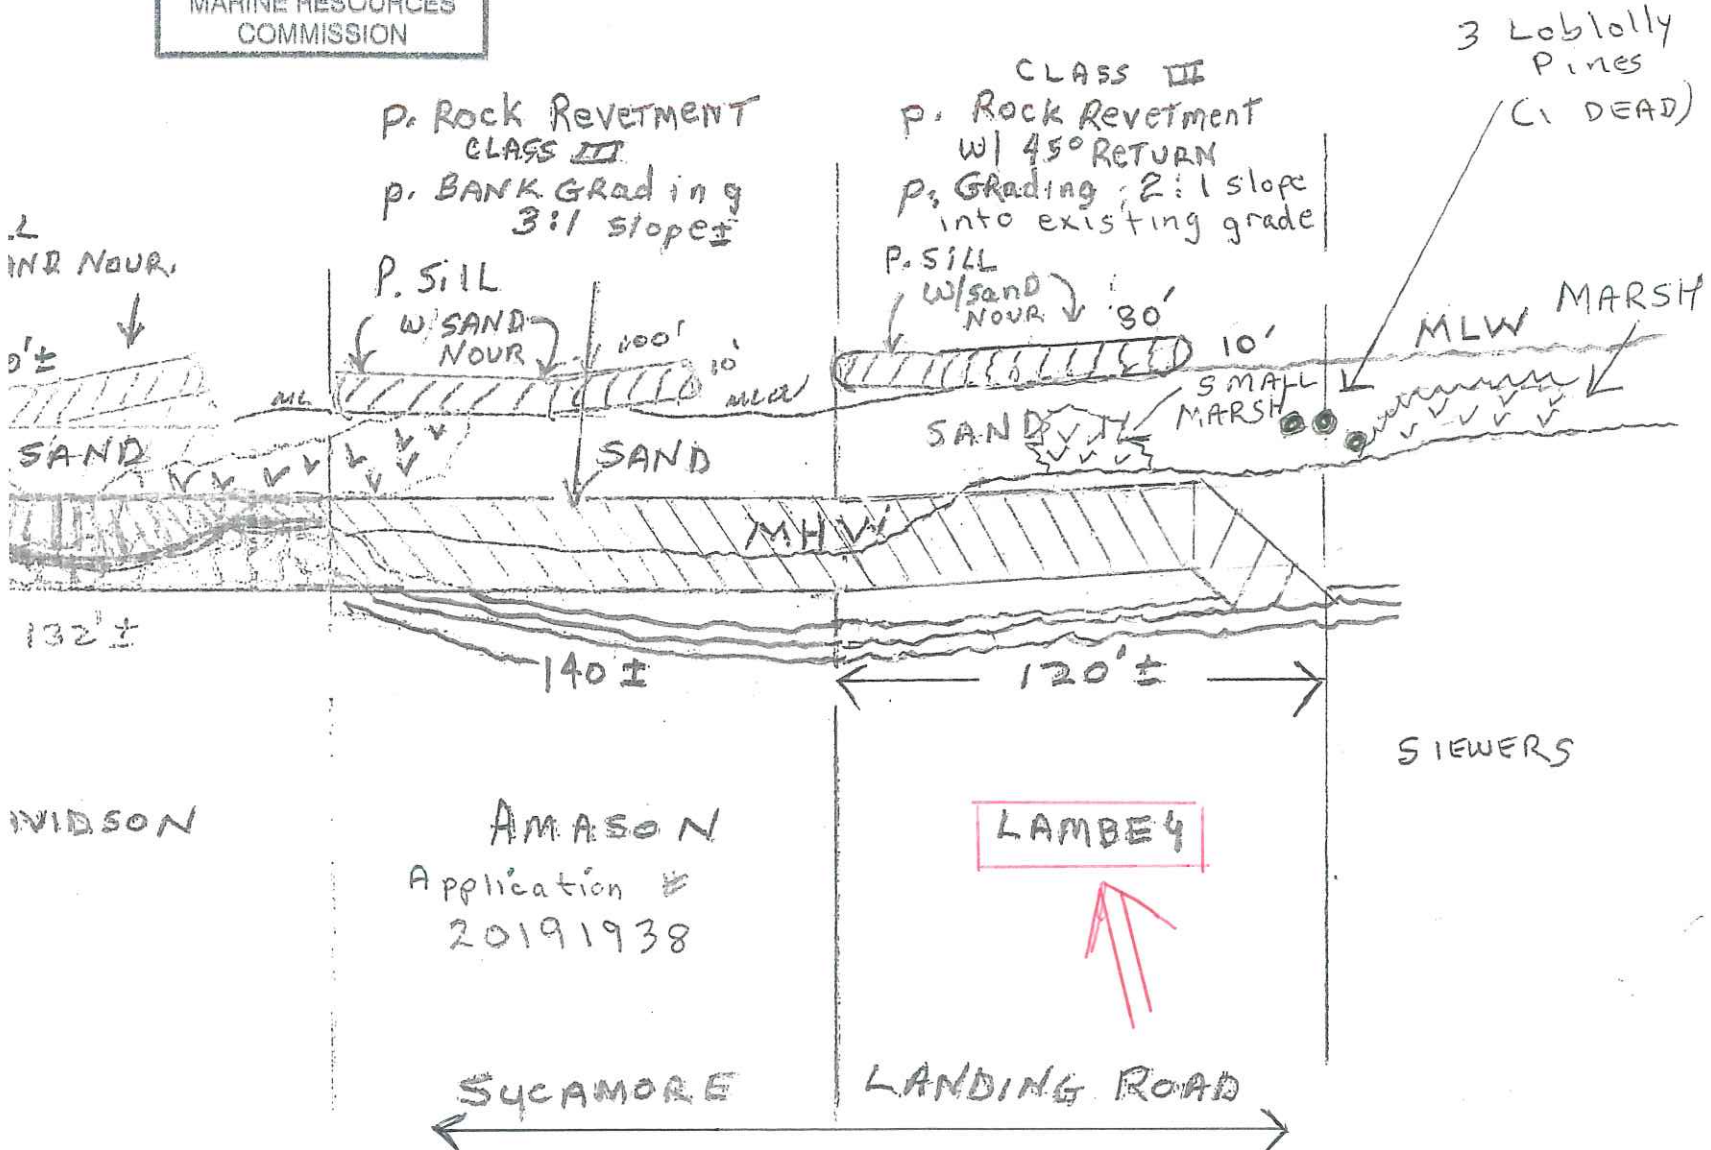 MARINE RESOURCES
COMMISSION
3 Loblolly
Pines
(1 DEAD)
p. Rock Revetment
CLASS III
p. BANK GRading
3:1 slope±
CLASS III
p. Rock Revetment
W/ 45° RETURN
p. GRading 2:1 slope
into existing grade
NOUR.
P. SILL
W/SAND
NOUR
100'
10'
P. SILL
W/sand
NOUR
80'
10'
MLW
MARSH
SMALL
MARSH
SAND
SAND
SAND
MHW
132'±
140±
120'±
SIEWERS
AMASON
Application #
20191938
LAMBEY
SYCAMORE LANDING ROAD